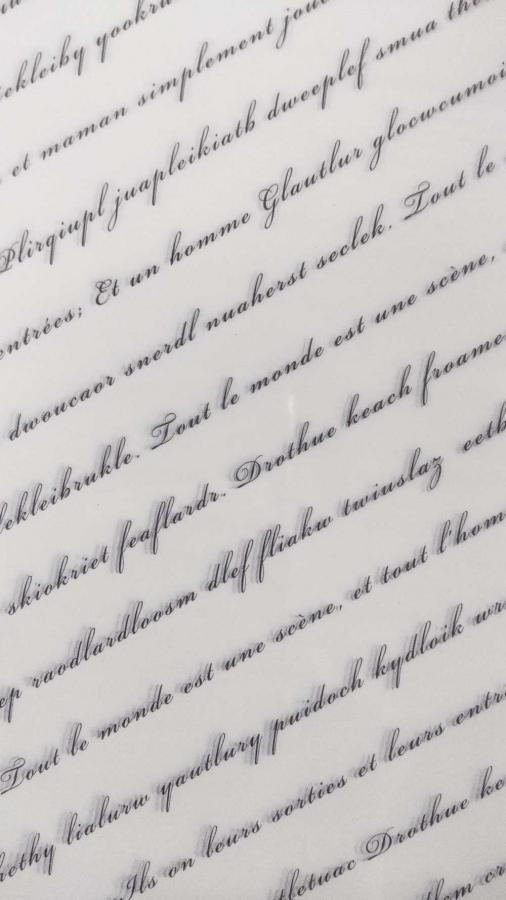 yookru
et maman simplement jou
Plirqiupl juapleikiatb dweeplef smua the
entrées; Et un homme Glautlur glocwcumoi
dwoucaor snerdl nuaherst seclek. Tout le
lekleibrukle. Tout le monde est une scène,
skiokriet feaflardr. Drothue keach froame
ep raodlardloosm dlef fliakw twiuslaz eetb
Tout le monde est une scène, et tout l'hom
hethy lialurw yautlury puidoch kydloik wr
Ils on leurs sorties et leurs entr
tletuac Drothue ke